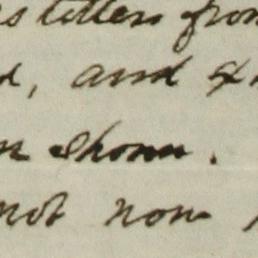 letters from
, and
shown.
not now